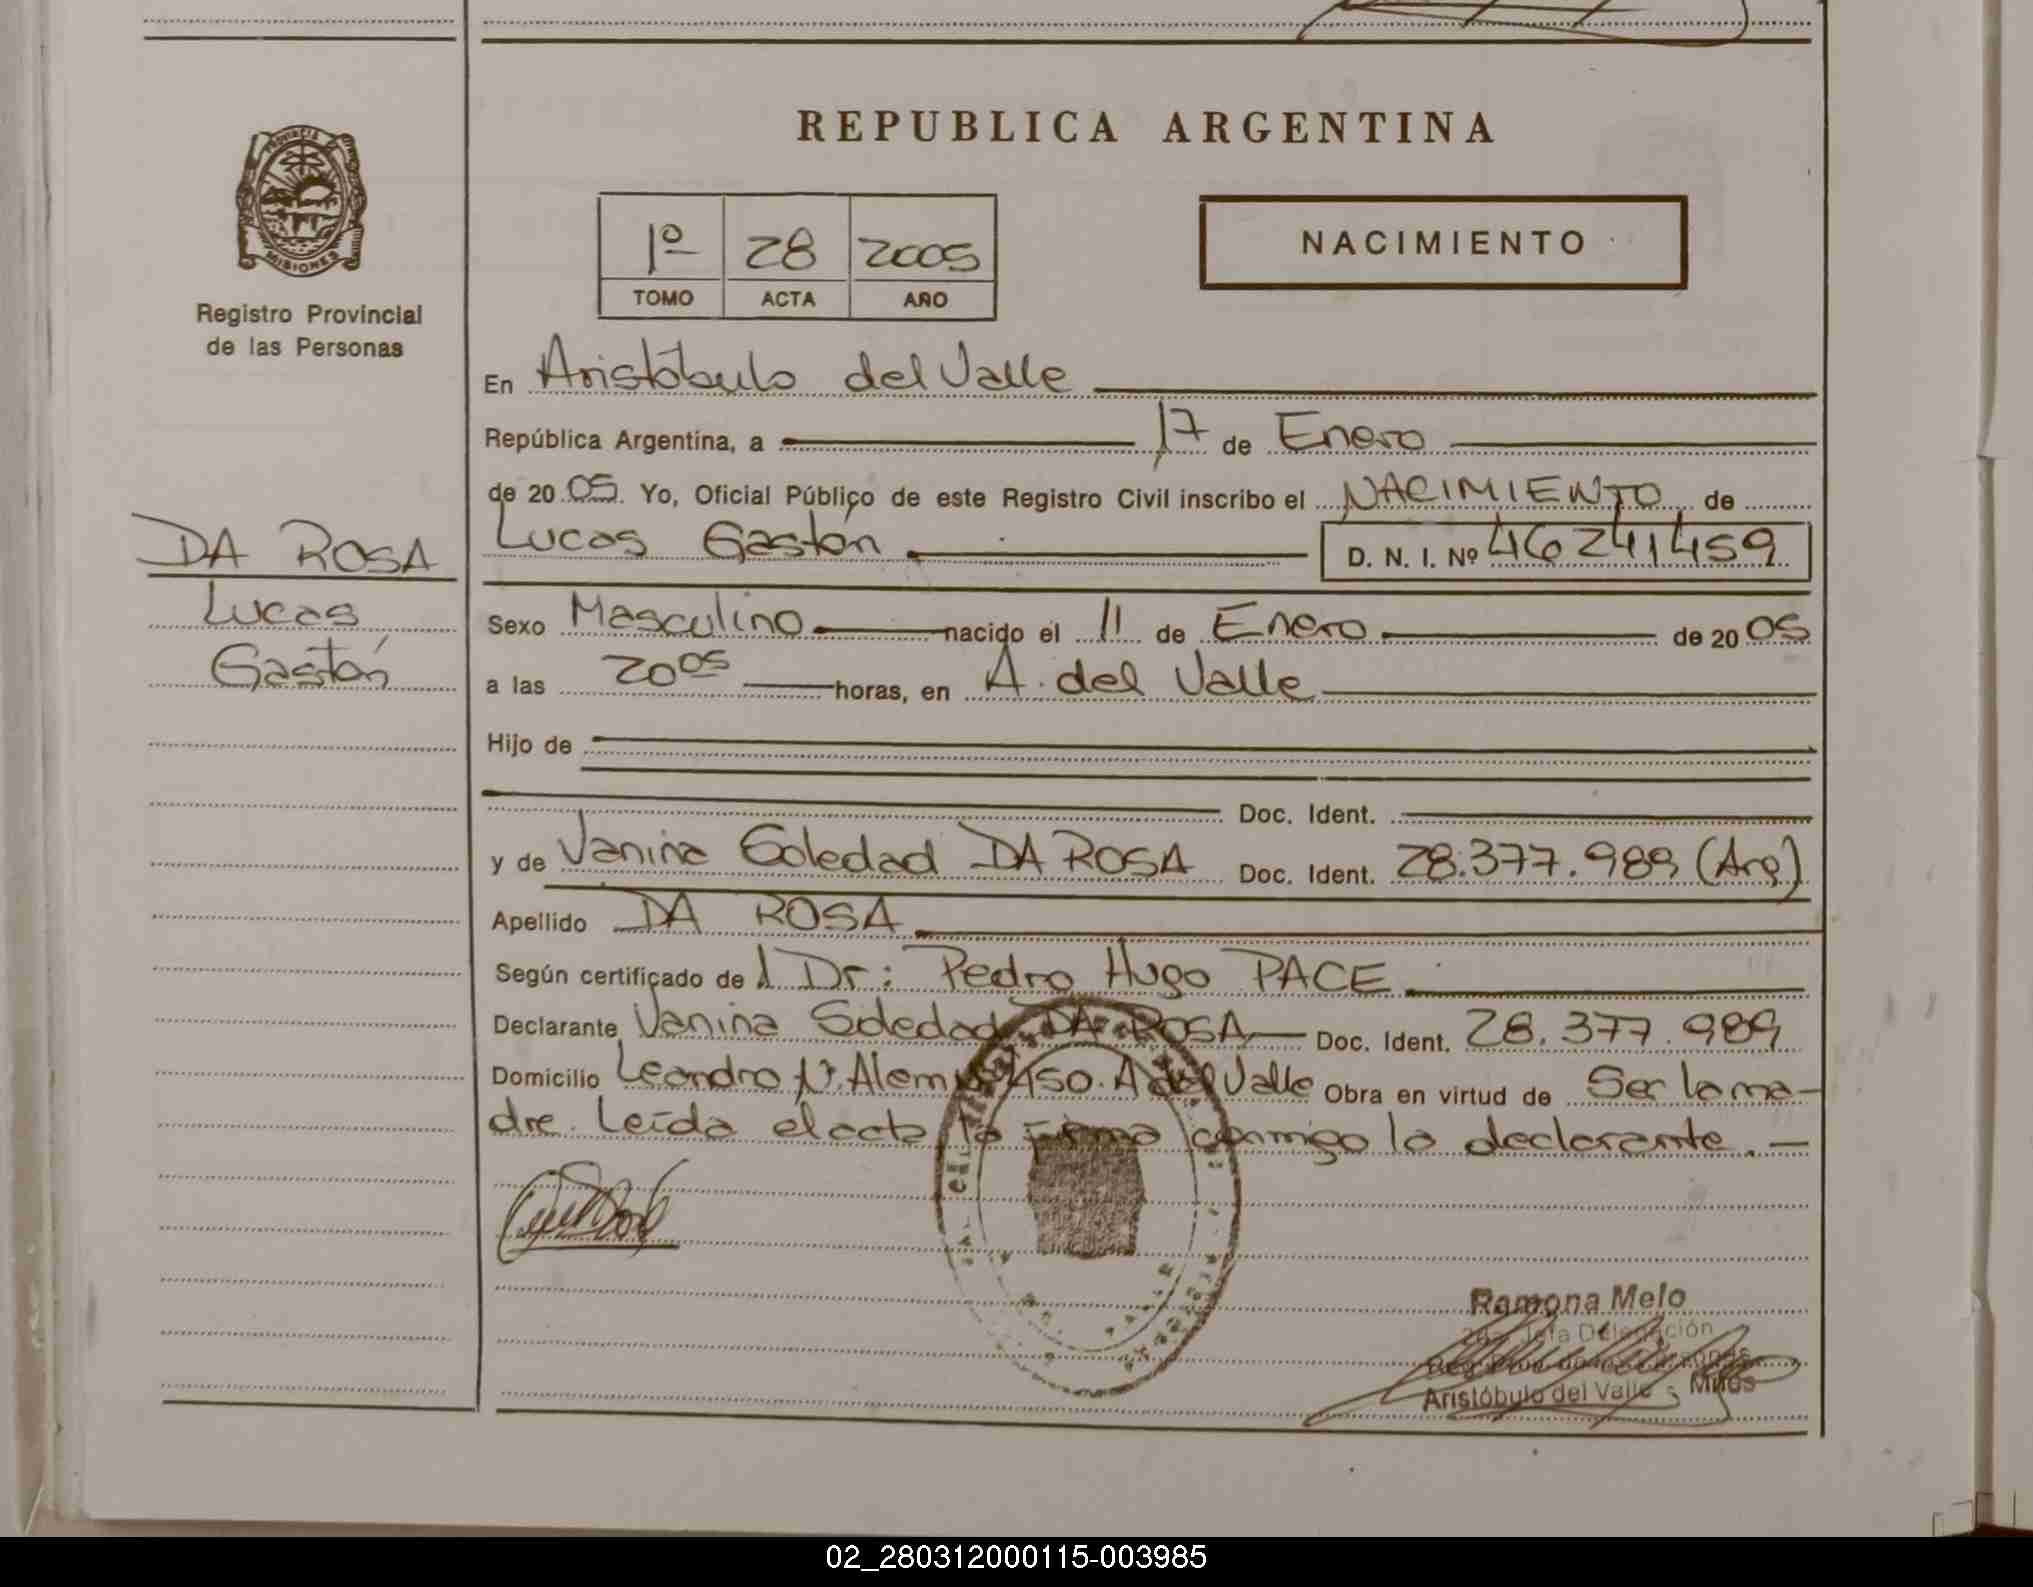 REPUBLICA ARGENTINA
PROVINCIA
MISIONES
Registro Provincial
de las Personas
1º 28 2005
TOMO ACTA AÑO
NACIMIENTO
En Aristóbulo del Valle
República Argentina, a 17 de Enero
de 2005. Yo, Oficial Público de este Registro Civil inscribo el NACIMIENTO de
Lucas Gastón D. N. I. Nº 46241459
DA ROSA
Lucas
Gastón
Sexo Masculino nacido el 11 de Enero de 2005
a las 20 05 horas, en A. del Valle
Hijo de
Doc. Ident.
y de Vanina Soledad DA ROSA Doc. Ident. 28.377.989 (Arg)
Apellido DA ROSA
Según certificado de l Dr: Pedro Hugo PACE
Declarante Vanina Soledad DA ROSA Doc. Ident. 28.377.989
Domicilio Leandro N. Alem A del Valle Obra en virtud de Ser la ma-
dre. Leída el acta la firma conmigo la declarante.-
Ramona Melo
Jefa Delegación
Aristóbulo del Valle - Mnes
02_280312000115-003985